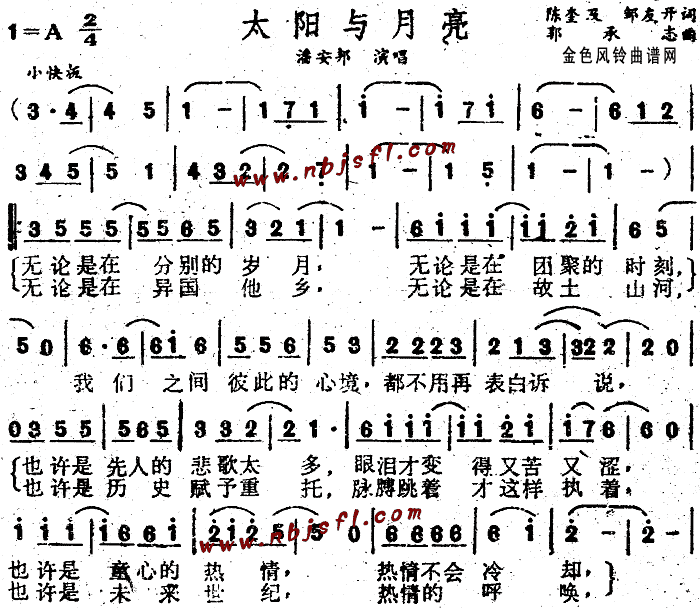 1=A 2/4 太阳与月亮 陈奎及 邹友开词
郭承志曲
潘安邦 演唱 金色风铃曲谱网
小快板
(3·4|4 5|1 -|1 71|1 -|1 71|6 -|6 12|
3 45|5 1|4 32|2 7|1 -|1 5|1 -|1 -)
www.nbjsfl.com
35 55|55 65|3 21|1 -|61 11|11 21|6 5|
无论是在 分别的岁月, 无论是在 团聚的时刻,
无论是在 异国他乡, 无论是在 故土山河,
5 0|6·6|61 6|55 6|5 3|2 223|2 13|322|2 0|
我们之间 彼此的心境, 都不用再表白诉说,
03 55|565|33 2|2 1·|61 11|11 21|176|6 0|
也许是 先人的悲歌太多, 眼泪才变得又苦又涩,
也许是 历史赋予重托, 脉膊跳着才这样执着,
1 11|166 1|21 25|5 0|6 666|6 1|2 -|2 -|
www.nbjsfl.com
也许是 童心的热情, 热情不会冷却,
也许是 未来世纪, 热情的呼唤,